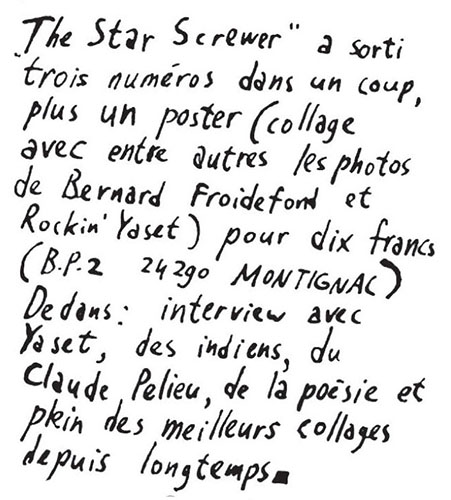 "The Star Screwer" a sorti
trois numéros dans un coup,
plus un poster (collage
avec entre autres les photos
de Bernard Froidefond et
Rockin' Yaset) pour dix francs
(B.P.2 24290 MONTIGNAC)
Dedans: interview avec
Yaset, des indiens, du
Claude Pelieu, de la poésie et
plein des meilleurs collages
depuis longtemps.